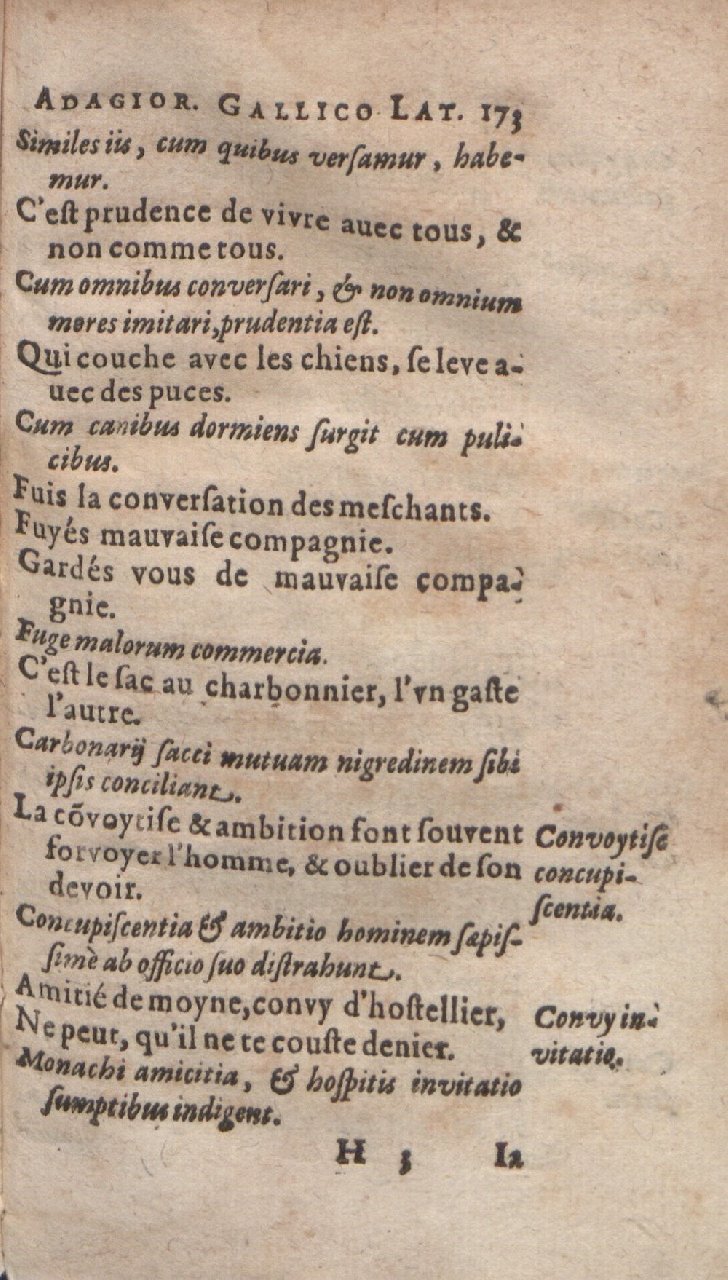 ADAGIOR. GALLICO LAT. 173
Similes iis, cum quibus verſamur, habe-
mur.
C'eſt prudence de vivre auec tous, &
non comme tous.
Cum omnibus converſari, & non omnium
mores imitari, prudentia eſt.
Qui couche avec les chiens, ſe leve a-
uec des puces.
Cum canibus dormiens ſurgit cum puli-
cibus.
Fuis la converſation des meſchants.
Fuyés mauvaiſe compagnie.
Gardés vous de mauvaiſe compa-
gnie.
Fuge malorum commercia.
C'eſt le ſac au charbonnier, l'vn gaſte
l'autre.
Carbonarij ſacci mutuam nigredinem ſibi
ipſis conciliant.
La cōvoytiſe & ambition font ſouvent
forvoyer l'homme, & oublier de ſon
devoir.
Convoytiſe
concupi-
ſcentia.
Concupiſcentia & ambitio hominem ſæpiſ-
ſimè ab officio ſuo diſtrahunt.
Amitié de moyne, convy d'hoſtellier,
Ne peut, qu'il ne te couſte denier.
Convy in-
vitatio.
Monachi amicitia, & hoſpitis invitatio
ſumptibus indigent.
H 3 Ia